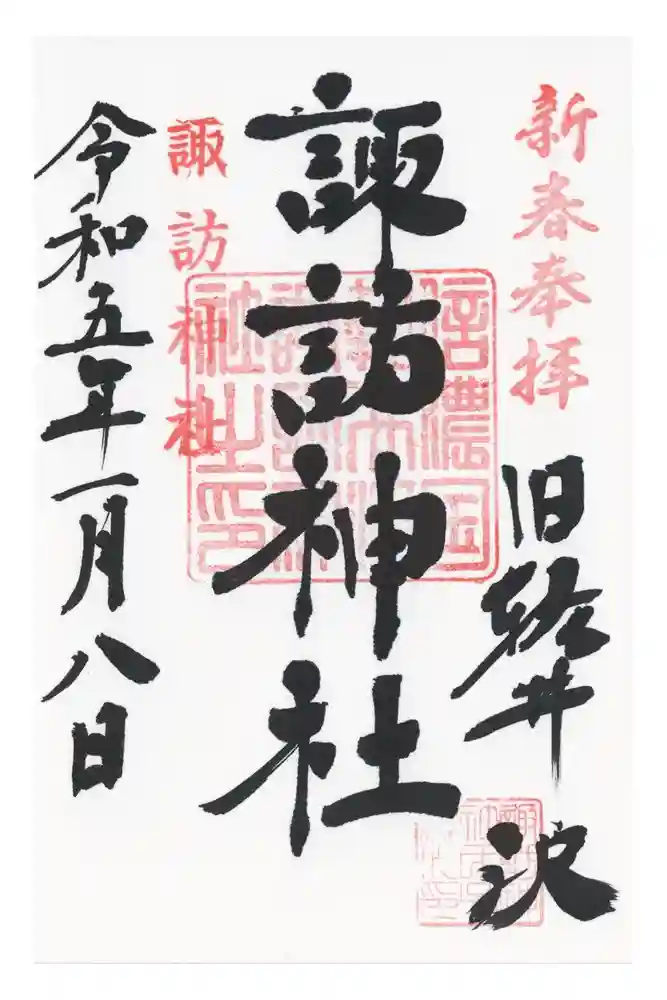 新春奉拝
旧軽井沢
諏訪神社
信濃国
社之印
諏訪神社
令和五年一月八日